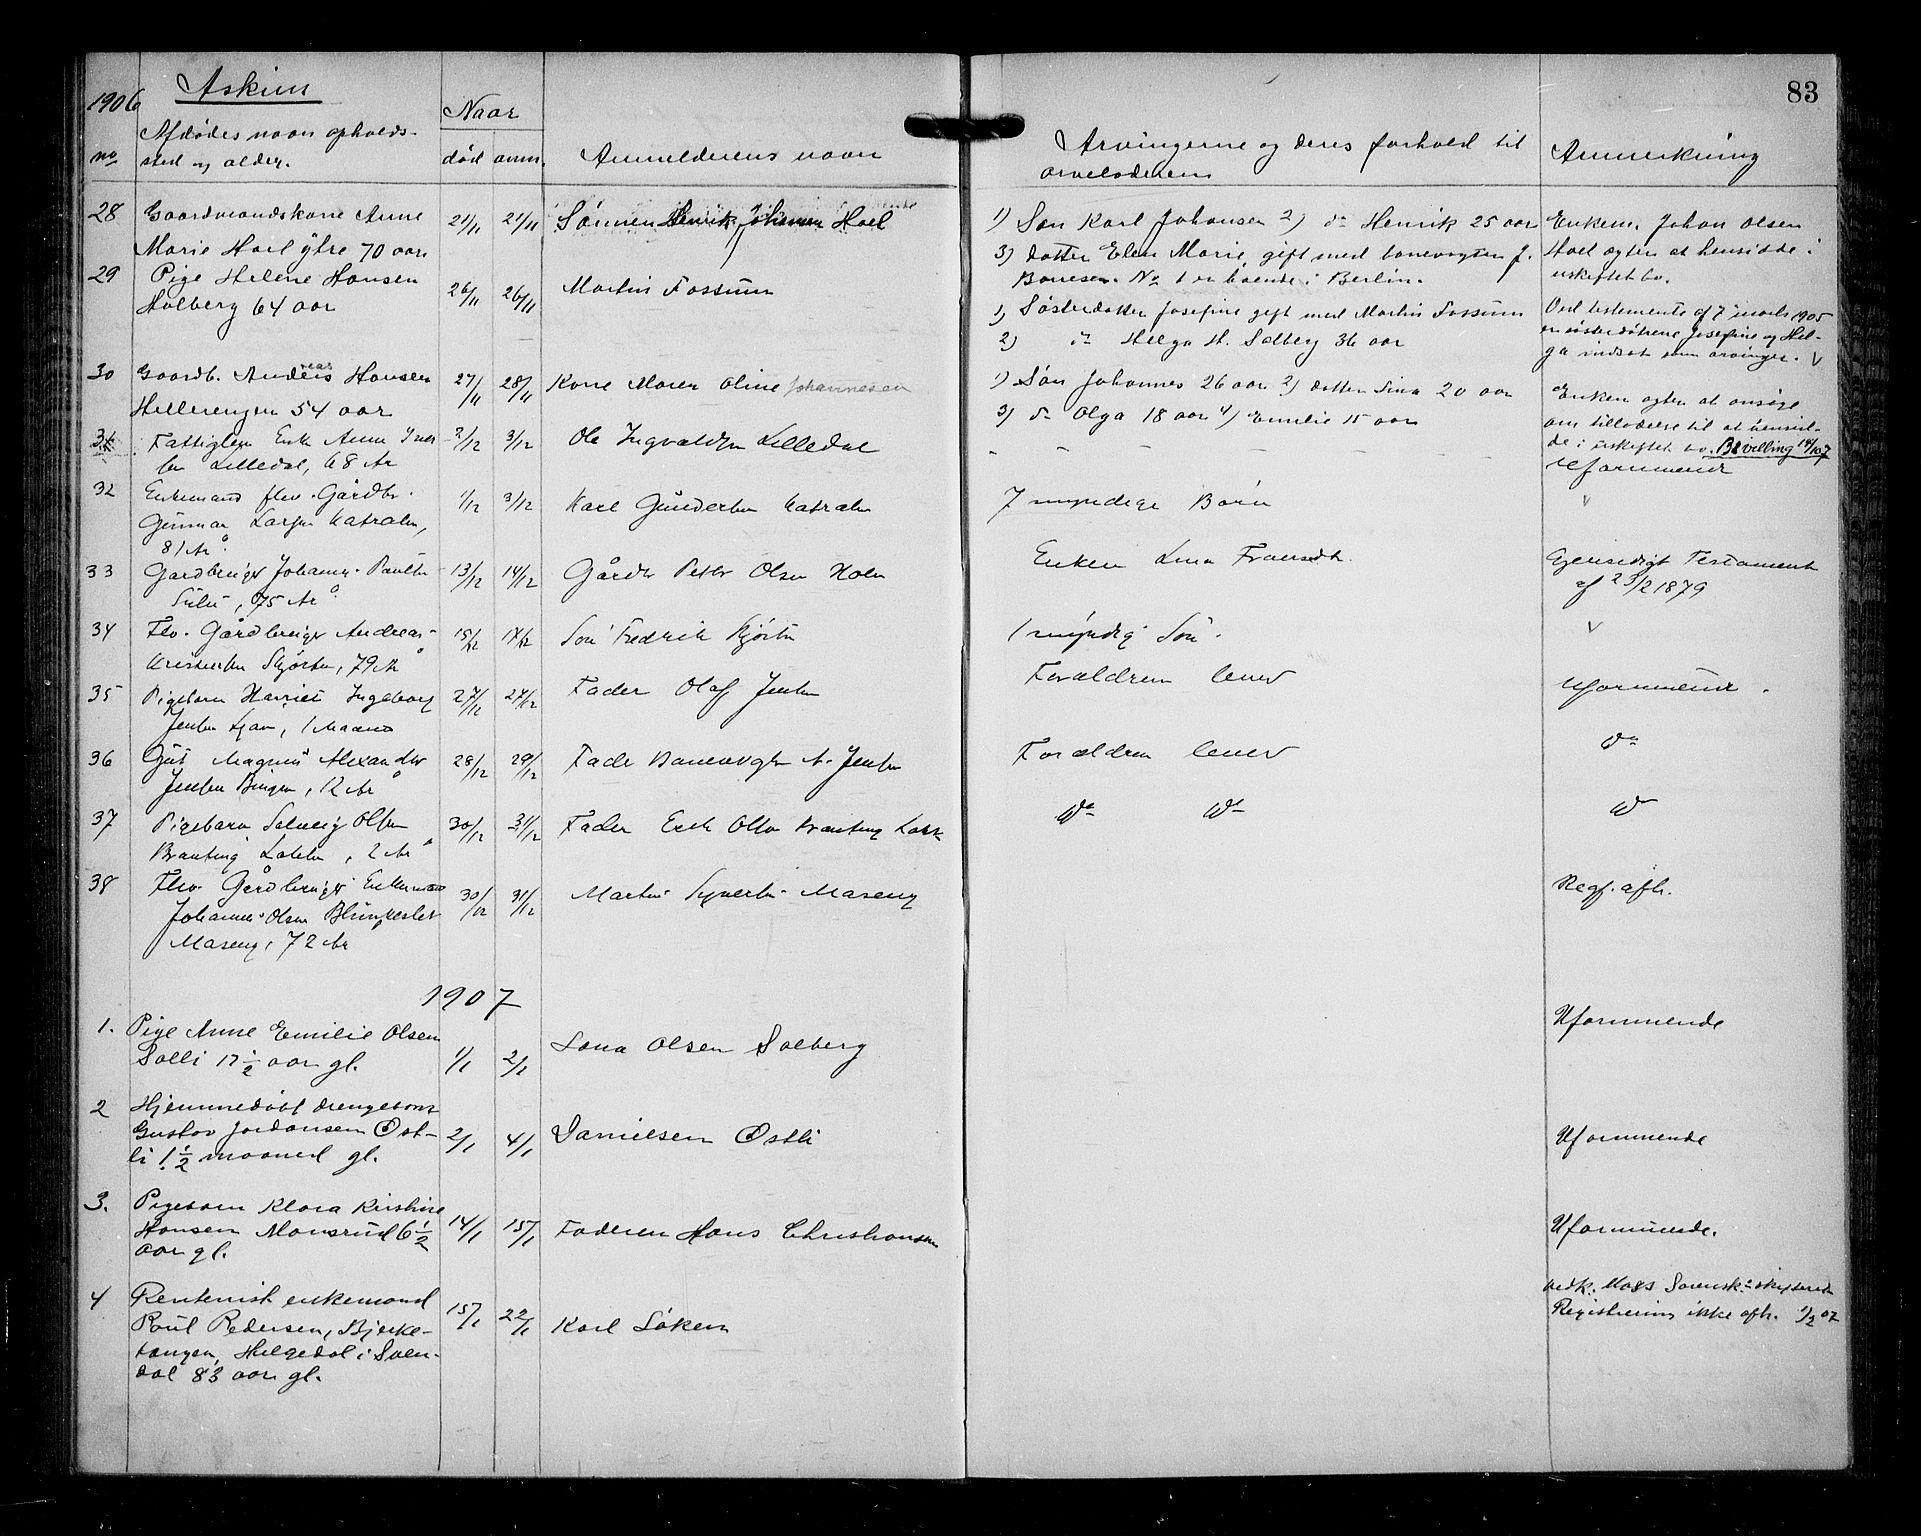 83
Askim
1906
no
Afdødes navn opholds-
sted og alder.
Naar
død anm.
Anmelderens navn
Arvingerne og deres forhold til
arveladeren
Anmerkning
28 Gaardmandskone Anne
Marie Hoel ytre 70 aar
21/11 21/11
Sønnen Henrik Johansen Hoel
1) Søn Karl Johansen 2) do Henrik 25 aar
3) datter Elen Marie gift med banevogter J.
No 1 er boende i Berlin.
Enkem. Johan Olsen
Hoel agter at hensidde i
uskiftet bo.
29 Pige Helene Hansen
Holberg 64 aar
26/11 26/11
Martin Fossum
1) Søsterdatter Josefine gift med Martin Fossum
2) do Helga H. Solberg 36 aar
Ved testamente af 7 marts 1905
er søsterdøtrene Josefine og Hel-
ga indsat som arvinger. V
30 Gaardb. Andreas Hansen
Hellerengen 54 aar
27/11 28/11
Kone Maren Oline Johannesen
1) Søn Johannes 26 aar 2) datter Lina 20 aar
3) do Olga 18 aar 4) Emilie 15 aar
Enken agter at ansøge
om tilladelse til at hensid-
de i uskiftet bo. Bevilling 14/1 07
31 Fattiglem Enke Anne
Lilledal, 68 År
2/12 3/12
Ole Ingvaldsen Lilledal
- - - - - - -
Uformuende
32 Enkemand flev. Gårdbr.
Gunnar Larsen Katralen,
81 År.
1/12 3/12
Karl Gundersen Katralen
7 myndige Børn
v
33 Gardbruger Johannes Paulsen
75 År
13/12 14/12
Gårdbr Peter Olsen Holm
Enken Lina Fransdt.
Gjensidigt Testament
af 23/2 1879
34 Flv. Gårdbruger Andreas
Kristensen Skjørten, 79 År
15/12 17/12
Søn Fredrik Skjørten
1 myndig Søn.
v
35 Pigebarn Harriet Ingeborg
Jensen 1 Maaned
27/12 27/12
Fader Olaf Jensen
Forældren lever
Uformuende.
36 Gut Magnus Alexander
Jensen Bingen, 12 År
28/12 29/12
Fader Banevogter A. Jensen
Forældren lever
do
37 Pigebarn Solveig Olsen
Branting 2 År
30/12 31/12
Fader Erik Olsen Branting
do do
do
38 Flv. Gårdbruger Enkemand
Johannes Olsen
Maseng, 72 År
30/12 31/12
Martin Syversen Maseng
Regf. afh.
1907
1. Pige Anne Emilie Olsen
Solli 17 1/2 aar gl.
1/1 2/1
Lona Olsen Solberg
Uformuende
2 Hjemmedøbt drengebarn
Gustav Jordansen Øst-
li 1 1/2 maaned gl.
2/1 4/1
Danielsen Østli
Uformuende
3. Pigebarn Klara Kristine
Hansen Monsrud 6 1/2
aar gl.
14/1 15/1
Faderen Hans Christiansen
Uformuende.
4 Rentenist enkemand
Poul Pedersen, Bjerke-
tangen, Helgedal i Svin-
dal 83 aar gl.
15/1 22/1
Karl Løken
vedk. Moss Sorensk. skifteret
Registrering ikke afh. 1/2 07